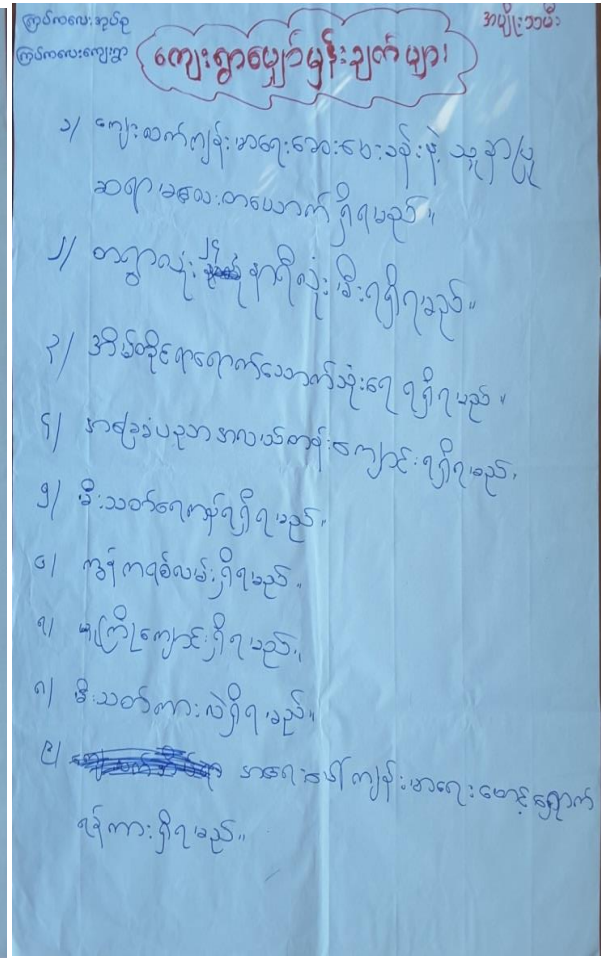 ကြပ်ကလေးအုပ်စု
ကြပ်ကလေးကျေးရွာ
အမျိုးသမီး
ကျေးရွာမျှော်မှန်းချက်များ
၁/ ကျေးလက်ကျန်းမာရေးဆေးပေးခန်းနဲ့ သူနာပြု
ဆရာမလေးတယောက်ရှိရမည်။
၂/ တရွာလုံး ၂၄ နာရီလုံး မီးရရှိရမည်။
၃/ အိမ်တိုင်ရာရောက်သောက်သုံးရေ ရရှိရမည်။
၄/ အခြေခံပညာအလယ်တန်းကျောင်းရရှိရမည်။
၅/ မီးသတ်ရေကန်ရရှိရမည်။
၆/ ကွန်ကရစ်လမ်းရှိရမည်။
၇/ မူကြိုကျောင်းရှိရမည်။
၈/ မီးသတ်ကားလဲရှိရမည်။
၉/ အရေးပေါ်ကျန်းမာရေးစောင့်ရှောက်
ရန်ကားရှိရမည်။